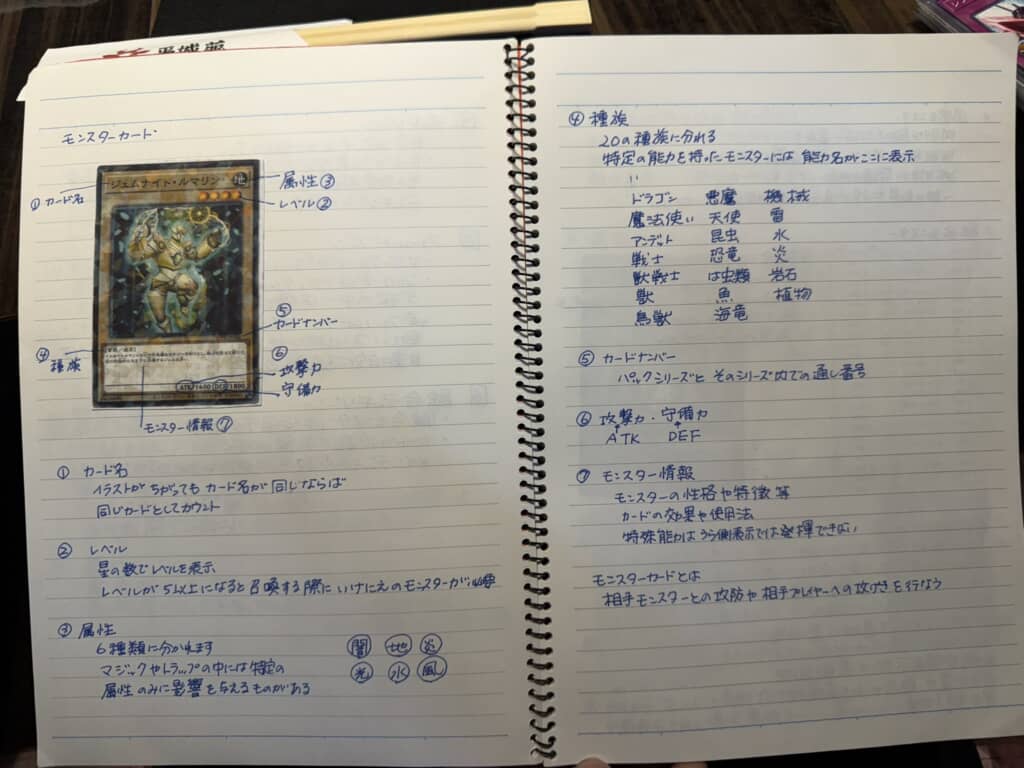 モンスターカード
ジェムナイト・ルマリン
地
①カード名
属性③
レベル②
⑤
カードナンバー
④
種族
⑥
攻撃力
守備力
ATK 1600 DEF 1800
モンスター情報⑦
① カード名
イラストがちがっても カード名が同じならば
同じカードとしてカウント
② レベル
星の数でレベルを表示
レベルが5以上になると召喚する際にいけにえのモンスターが必要
③ 属性
6種類に分かれます
マジックやトラップの中には特定の
属性のみに影響を与えるものがある
闇 地 炎
光 水 風
④ 種族
20の種族に分れる
特定の能力を持ったモンスターには 能力名がここに表示
ドラゴン 悪魔 機械
魔法使い 天使 雷
アンデット 昆虫 水
戦士 恐竜 炎
獣戦士 は虫類 岩石
獣 魚 植物
鳥獣 海竜
⑤ カードナンバー
パックシリーズと そのシリーズ内での通し番号
⑥ 攻撃力・守備力
ATK DEF
⑦ モンスター情報
モンスターの性格や特徴等
カードの効果や使用法
特殊能力はうら側表示では発揮できない
モンスターカードとは
相手モンスターとの攻防や相手プレイヤーへの攻げきを行なう